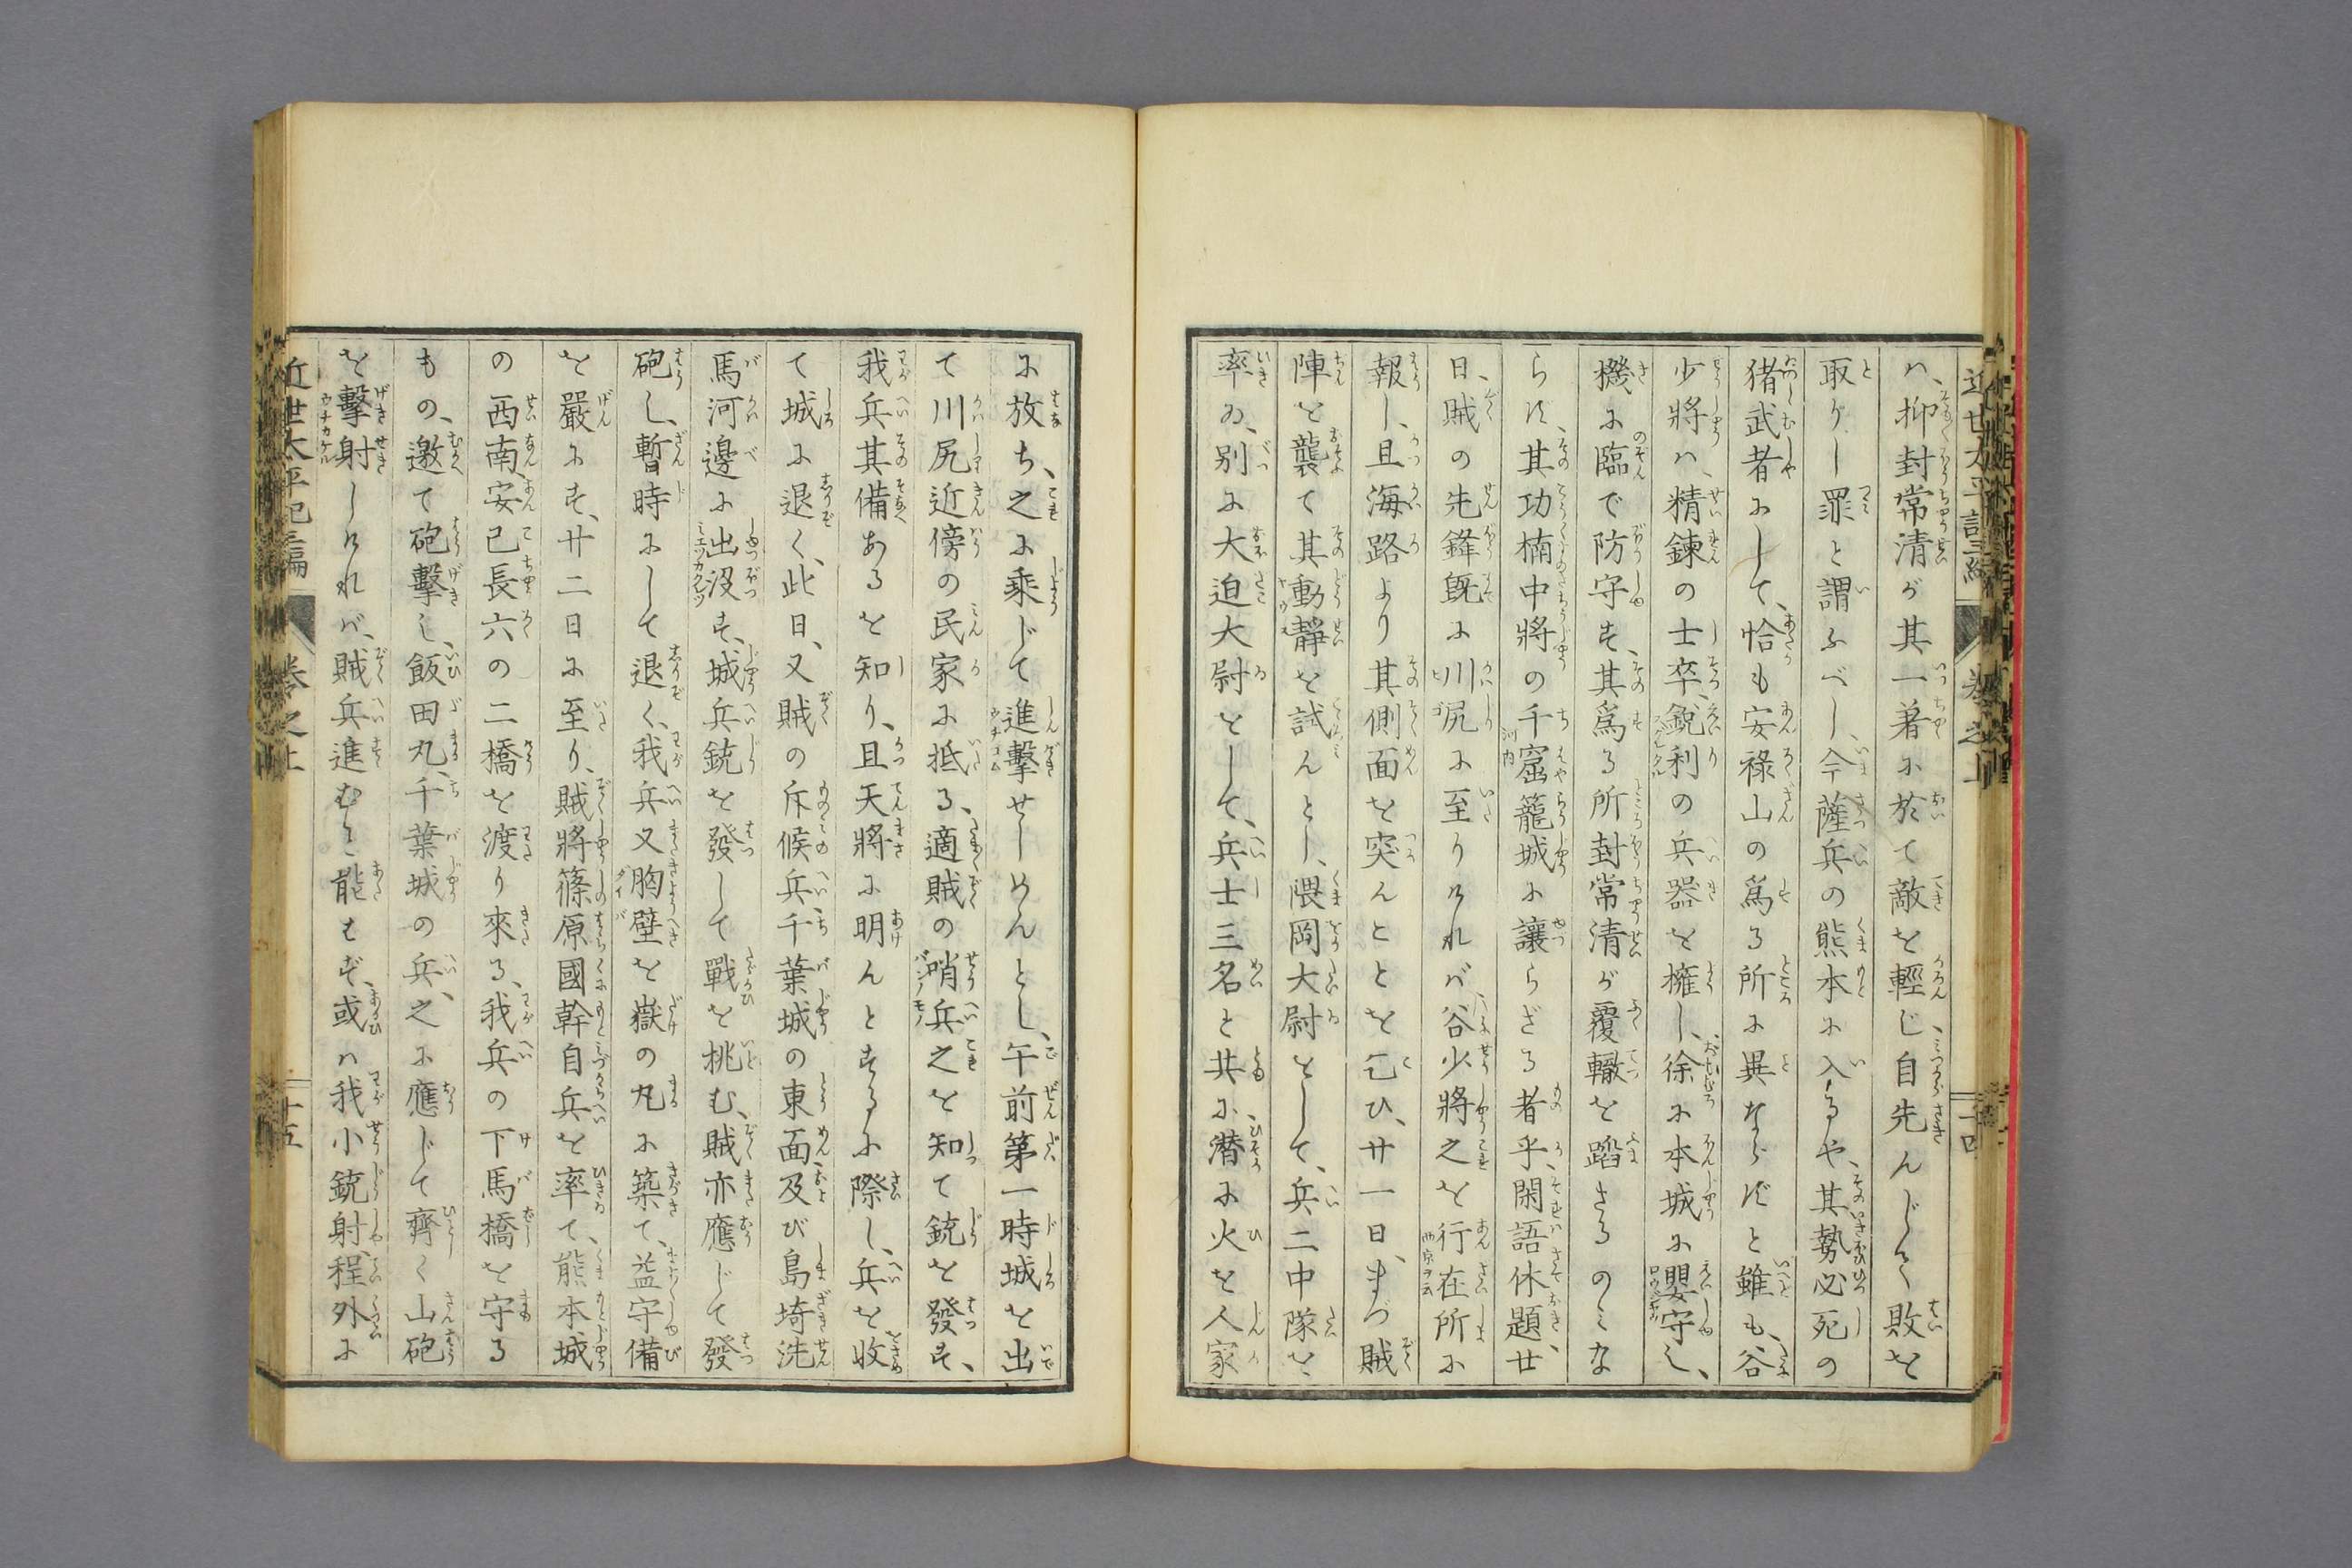 ハ、抑封常清が其一著に於て敵を輕じ自先んじて敗を
取りし罪と謂ふべし、今薩兵の熊本に入るや、其勢必死の
猪武者にして、恰も安祿山の爲る所に異ならずと雖も、谷
少將ハ、精錬の士卒、鋭利の兵器を擁し、徐に本城に嬰守し、
機に臨で防守す、其爲る所封常清が覆轍を蹈ざるのミな
らず、其功楠中將の千窟籠城に讓らざる者乎、閑話休題、廿
日、賊の先鋒既に川尻に至りけれバ谷少將之を行在所に
報し、且海路より其側面を突んことを乞ひ、廿一日、まづ賊
陣を襲て其動靜を試んとし、隈岡大尉をして、兵二中隊を
率ゐ、別に大迫大尉をして、兵士三名と共に潛に火を人家
に放ち、之に乘じて進擊せしめんとし、午前第一時城を出
て川尻近傍の民家に抵る、適賊の哨兵之を知て銃を發す、
我兵其備あるを知り、且天將に明んとするに際し、兵を收
て城に退く、此日、又賊の斥候兵千葉城の東面及び島埼洗
馬河邊に出沒す、城兵銃を發して戰を挑む、賊亦應じて發
砲し、暫時にして退く、我兵又胸壁を嶽の丸に築て、益守備
を嚴にす、廿二日に至り、賊將篠原國幹自兵を率て、熊本城
の西南安己長六の二橋を渡り來る、我兵の下馬橋を守る
もの、邀て砲擊し、飯田丸、千葉城の兵、之に應じて齊く山砲
を擊射しけれバ、賊兵進むこと能はず、或ハ我小銃射程外に
近世太平記三編 卷之上 十五